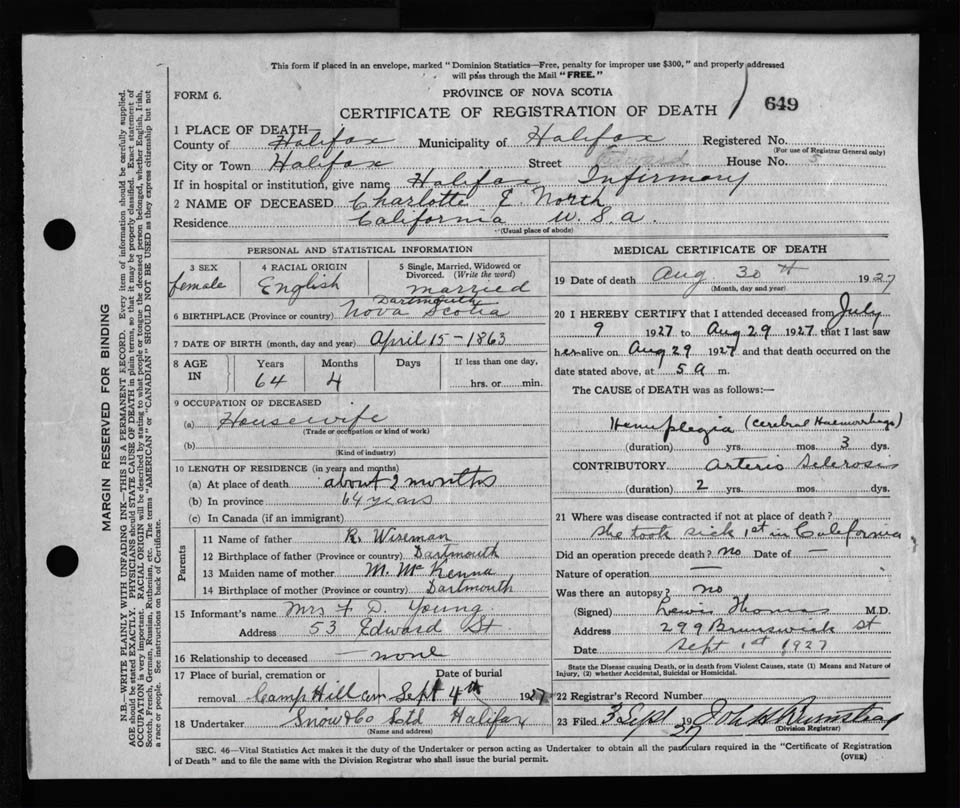 This form if placed in an envelope, marked "Dominion Statistics—Free, penalty for improper use $300," and properly addressed
will pass through the Mail "FREE."
FORM 6.
PROVINCE OF NOVA SCOTIA
CERTIFICATE OF REGISTRATION OF DEATH
649
1 PLACE OF DEATH—
County of Halifax Municipality of Halifax Registered No.
(For use of Registrar General only)
City or Town Halifax Street Edward House No. 5
If in hospital or institution, give name Halifax Infirmary
2 NAME OF DECEASED Charlotte E. North
Residence California U.S.A.
(Usual place of abode)
PERSONAL AND STATISTICAL INFORMATION
3 SEX
female
4 RACIAL ORIGIN
English
5 Single, Married, Widowed or
Divorced. (Write the word)
married
Dartmouth
6 BIRTHPLACE (Province or country) Nova Scotia
7 DATE OF BIRTH (month, day and year) April 15-1863
8 AGE IN
Years 64
Months 4
Days
If less than one day,
hrs. or min.
9 OCCUPATION OF DECEASED
(a) Housewife
(Trade or occupation or kind of work)
(b)
(Kind of industry)
10 LENGTH OF RESIDENCE (in years and months)
(a) At place of death about 2 months
(b) In province 64 years
(c) In Canada (if an immigrant)
Parents
11 Name of father R. Wiseman
12 Birthplace of father (Province or country) Dartmouth
13 Maiden name of mother M. McKenna
14 Birthplace of mother (Province or country) Dartmouth
15 Informant's name Mrs F D. Young
Address 53 Edward St
16 Relationship to deceased none
17 Place of burial, cremation or
removal Camp Hill Cem
Date of burial
Sept 4th 1927
18 Undertaker Snow & Co Ltd Halifax
(Name and address)
MEDICAL CERTIFICATE OF DEATH
19 Date of death Aug 30th 1927
(Month, day and year)
20 I HEREBY CERTIFY that I attended deceased from July
9 1927 to Aug 29 1927 that I last saw
her alive on Aug 29 1927 and that death occurred on the
date stated above, at 5 a m.
The CAUSE of DEATH was as follows:—
Hemiplegia (Cerebral Haemorrhage)
(duration) yrs. mos. 3 dys.
CONTRIBUTORY Arterio Sclerosis
(duration) 2 yrs. mos. dys.
21 Where was disease contracted if not at place of death?
She took sick 1st in California
Did an operation precede death? no Date of —
Nature of operation —
Was there an autopsy? no
(Signed) Lewis Thomas M.D.
Address 299 Brunswick St
Date Sept 1st 1927
State the Disease causing Death, or in death from Violent Causes, state (1) Means and Nature of
Injury, (2) whether Accidental, Suicidal or Homicidal.
22 Registrar's Record Number
23 Filed 3 Sept 1927
(Division Registrar)
SEC. 46—Vital Statistics Act makes it the duty of the Undertaker or person acting as Undertaker to obtain all the particulars required in the "Certificate of Registration
of Death" and to file the same with the Division Registrar who shall issue the burial permit.
(OVER)
MARGIN RESERVED FOR BINDING
N.B.—WRITE PLAINLY WITH UNFADING INK—THIS IS A PERMANENT RECORD. Every item of information should be carefully supplied.
AGE should be stated EXACTLY. PHYSICIANS should STATE CAUSE OF DEATH in plain terms, so that it may be properly classified. Exact statement of
OCCUPATION is very important. RACIAL ORIGIN will be described by stating to what people or tongue the deceased person belonged, whether English, Irish,
Scotch, French, German, Russian, Ruthenian, etc. The terms "AMERICAN" or "CANADIAN" SHOULD NOT BE USED as they express citizenship but not
a race or people. See instructions on back of Certificate.